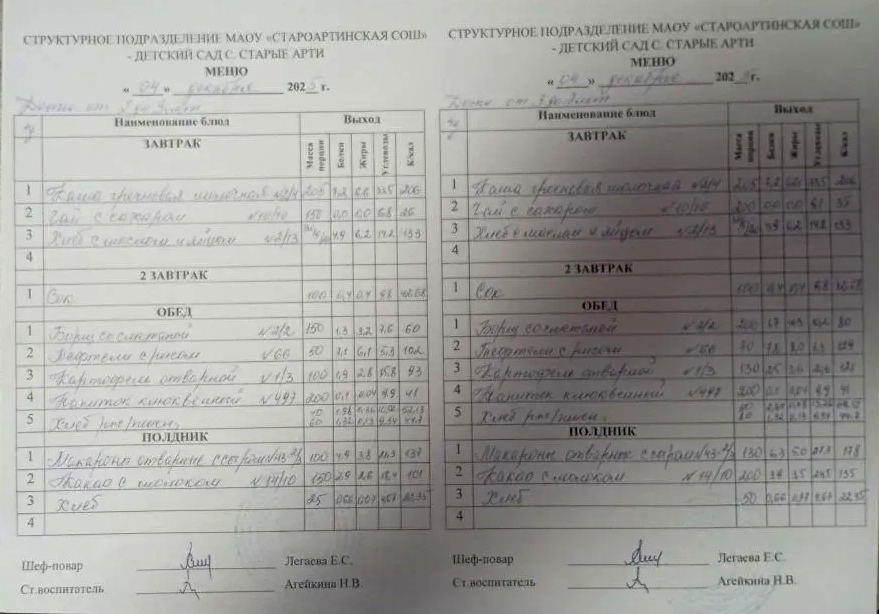 СТРУКТУРНОЕ ПОДРАЗДЕЛЕНИЕ МАОУ «СТАРОАРТИНСКАЯ СОШ»
- ДЕТСКИЙ САД С. СТАРЫЕ АРТИ
МЕНЮ
« 04 » декабря 2025 г.
Наименование блюд Выход
ЗАВТРАК Масса порции Белки Жиры Углеводы К/кал
1 Каша гречневая молочная №2/4 205 206
2 Чай с сахаром №10/10 150 0,0 0,0 6,8 26
3 Хлеб с маслом и яйцом №2/13 4,9 6,2 14,2 133
4
2 ЗАВТРАК
1 Сок 100 0,4 0,4 9,8
ОБЕД
1 Борщ со сметаной №2/2 150 1,3 3,2 7,6 60
2 Тефтели с рисом №66 50 7,1 6,1 5,3
3 Картофель отварной №1/3 100 1,9 2,8 15,8 93
4 Напиток клюквенный №497 200 0,1 0,04 9,9 41
5 Хлеб рж/пшен.
ПОЛДНИК
1 Макароны отварные с сыром №43-2/3 100 4,9 3,8 137
2 Какао с молоком №14/10 150 2,9 2,6 101
3 Хлеб 25 0,66 0,07
4
Шеф-повар Легаева Е.С.
Ст.воспитатель Агейкина Н.В.
СТРУКТУРНОЕ ПОДРАЗДЕЛЕНИЕ МАОУ «СТАРОАРТИНСКАЯ СОШ»
- ДЕТСКИЙ САД С. СТАРЫЕ АРТИ
МЕНЮ
« 04 » декабря 2025 г.
Наименование блюд Выход
ЗАВТРАК Масса порции Белки Жиры Углеводы К/кал
1 Каша гречневая молочная №2/4 205 206
2 Чай с сахаром №10/10 200 0,0 0,0 35
3 Хлеб с маслом и яйцом №2/13 6,2 14,2 133
4
2 ЗАВТРАК
1 Сок 100 0,4 0,4 9,8
ОБЕД
1 Борщ со сметаной №2/2 200 1,7 80
2 Тефтели с рисом №66 70 7,8 8,0
3 Картофель отварной №1/3 130 2,5 3,6 121
4 Напиток клюквенный №497 200 0,1 0,04 9,9 41
5 Хлеб рж/пшен.
ПОЛДНИК
1 Макароны отварные с сыром №43-2/3 130 6,3 5,0 27,3 178
2 Какао с молоком №14/10 200 3,5 135
3 Хлеб 0,66
4
Шеф-повар Легаева Е.С.
Ст.воспитатель Агейкина Н.В.